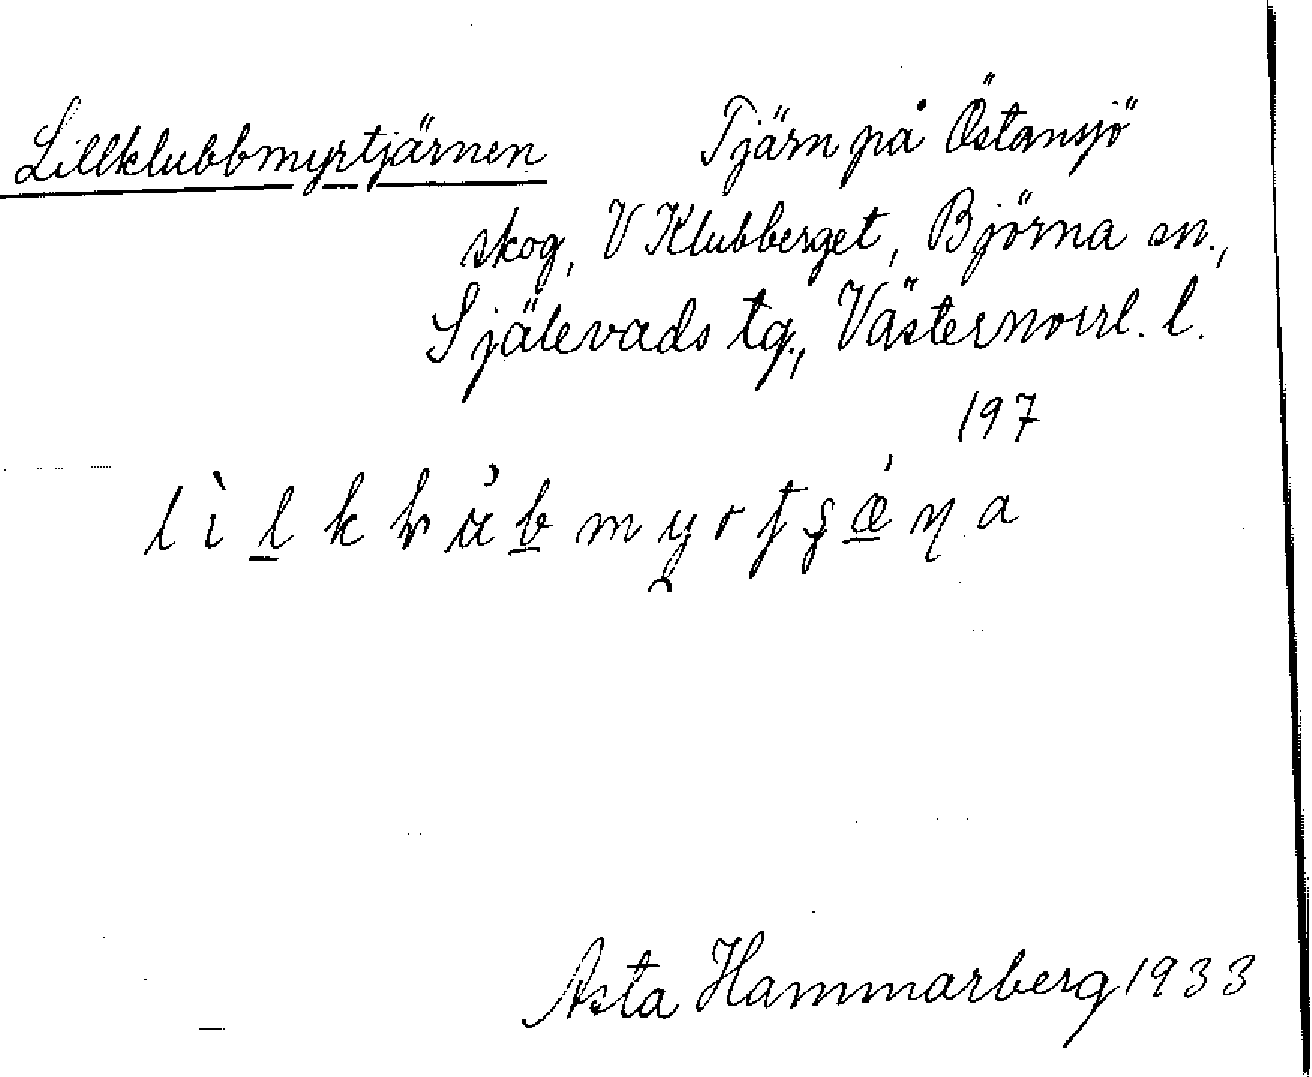 Lillklubbmyrtjärnen Tjärn på Östansjö
skog, V Klubberget, Björna sn.,
Själevads tg., Västernorrl. l.
197
Asta Hammarberg 1933